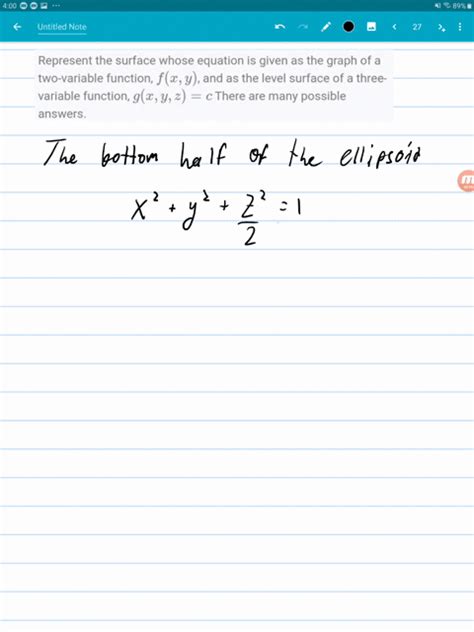 4:00 89%
Untitled Note 27
Represent the surface whose equation is given as the graph of a
two-variable function, f(x, y), and as the level surface of a three-
variable function, g(x, y, z) = c There are many possible
answers.
The bottom half of the ellipsoid
x² + y² + z²/2 = 1